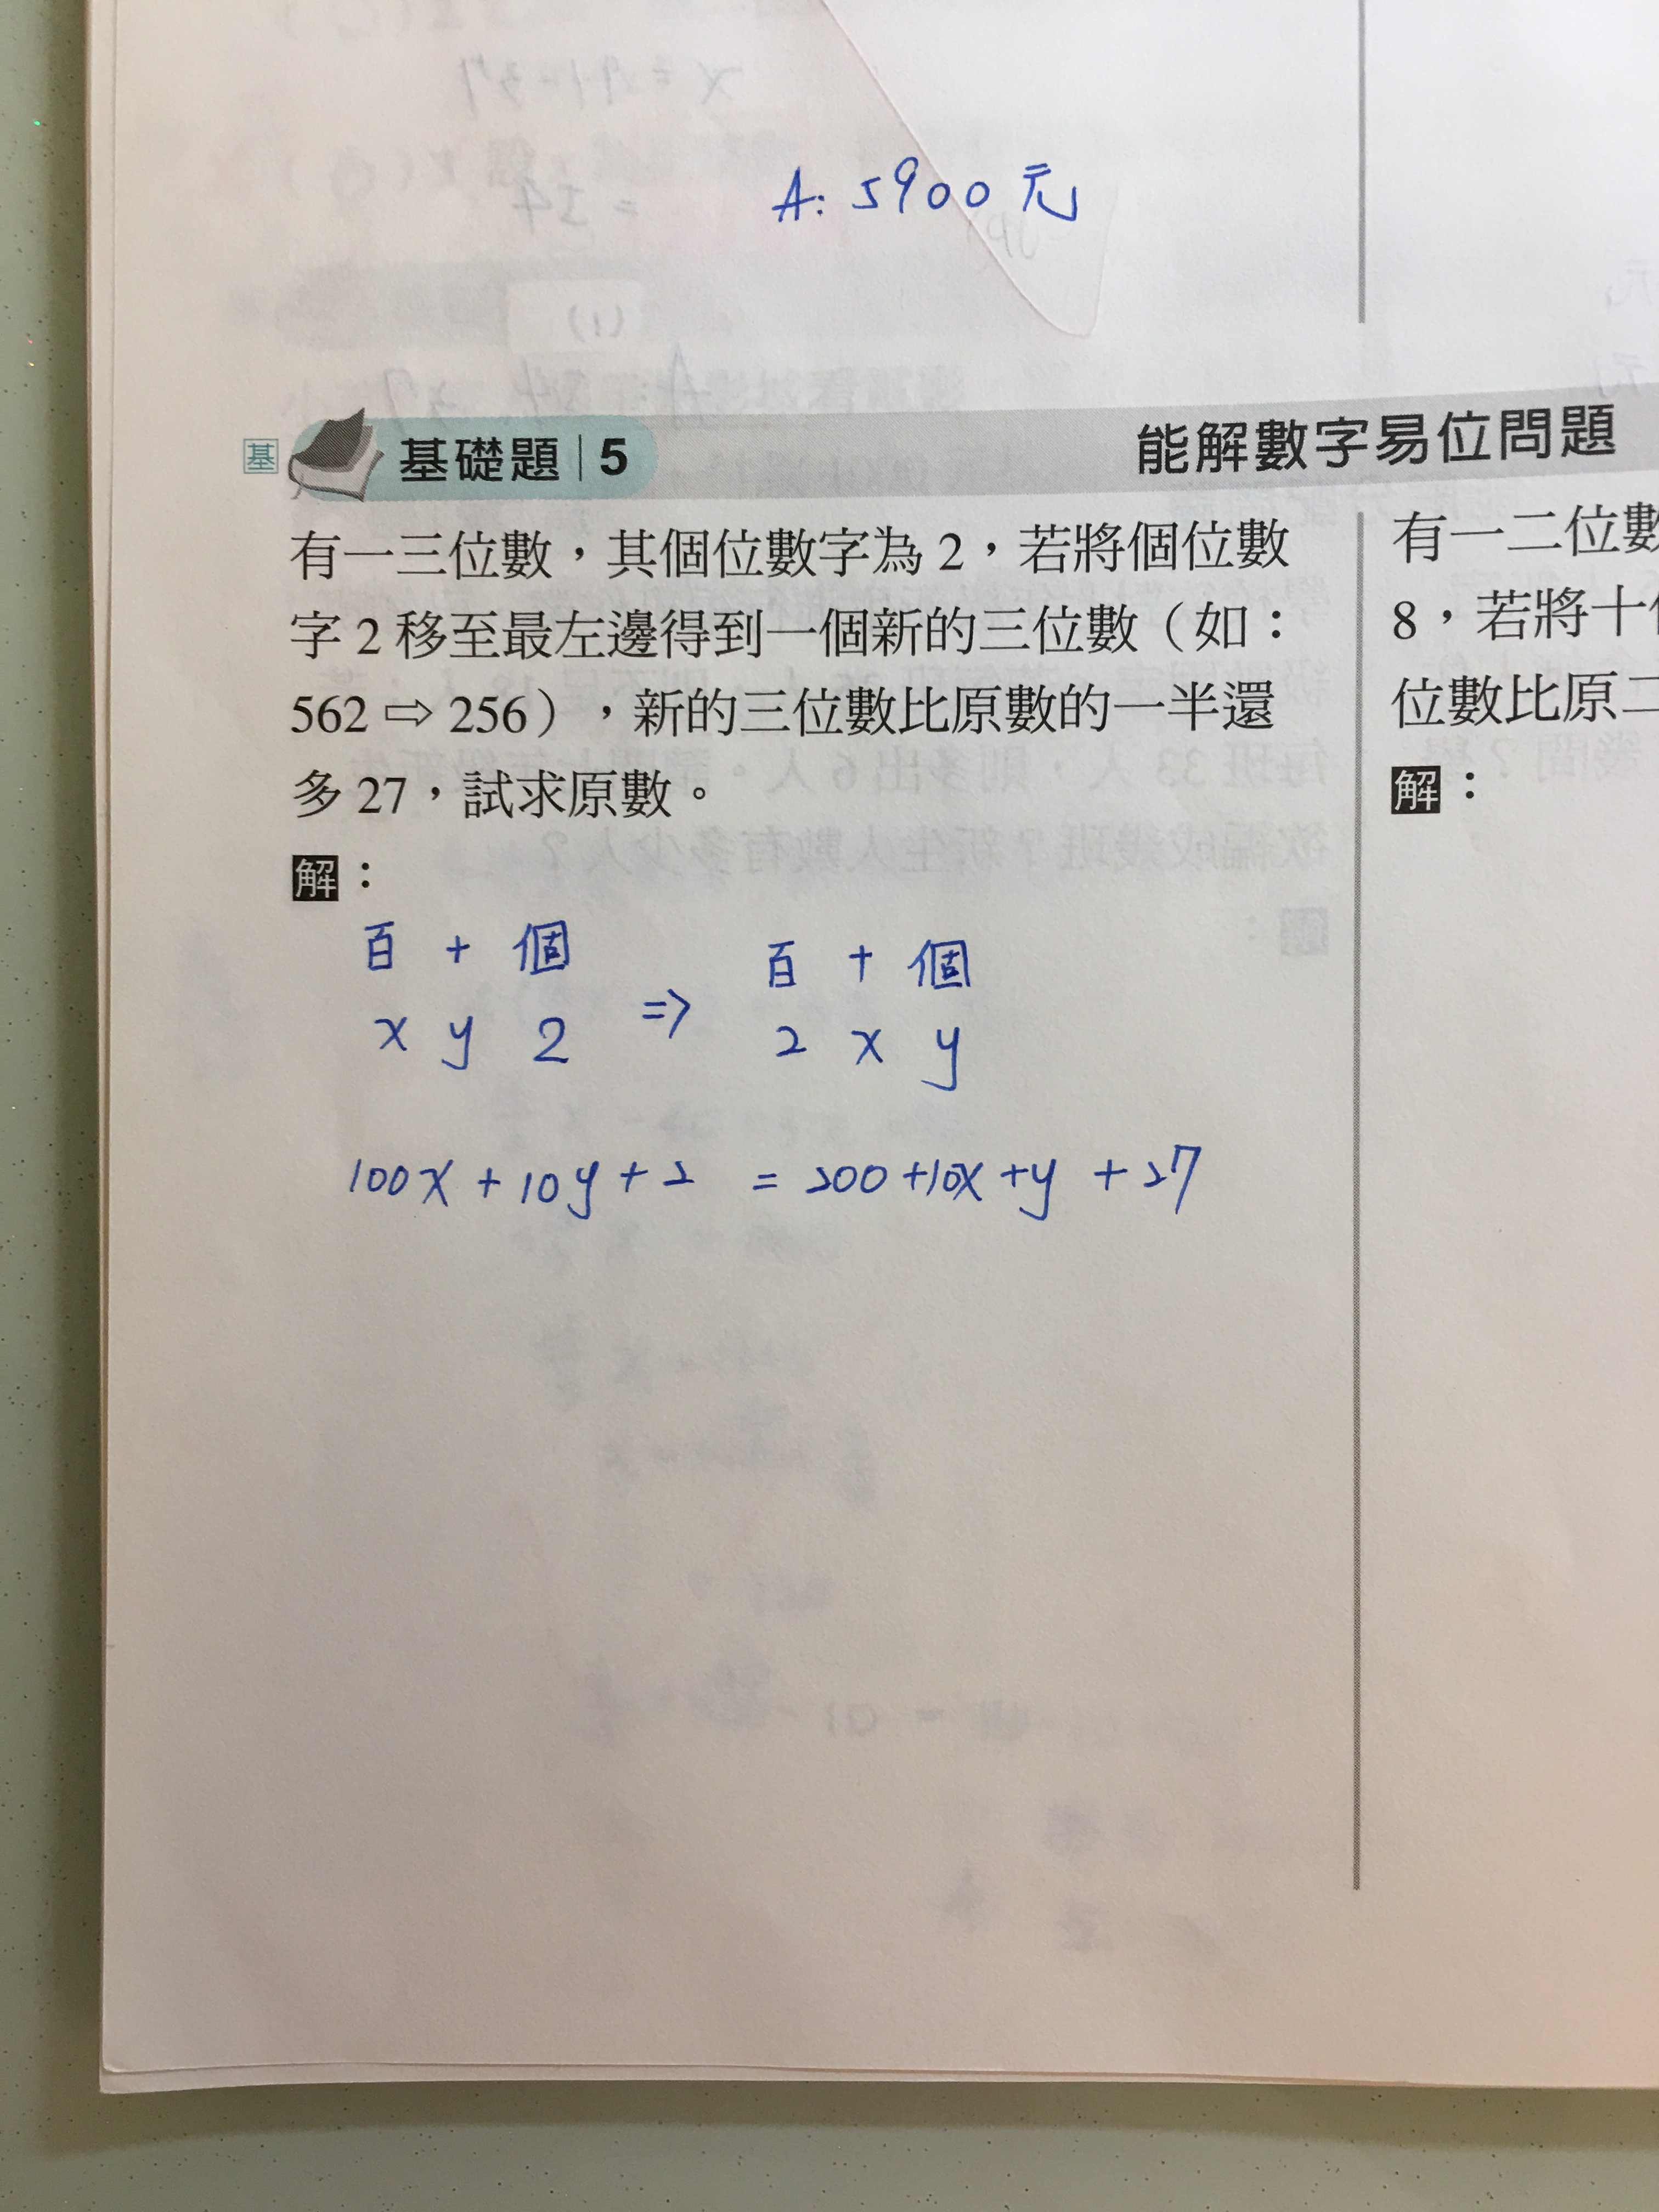 A: 5900元
基 基礎題 | 5 能解數字易位問題
有一三位數，其個位數字為 2，若將個位數
字 2 移至最左邊得到一個新的三位數（如：
562 ⇨ 256），新的三位數比原數的一半還
多 27，試求原數。
解：
百 十 個 百 十 個
x y 2 => 2 x y
100x + 10y + 2 = 200 + 10x + y + 27
有一二位數
8，若將十
位數比原二
解：